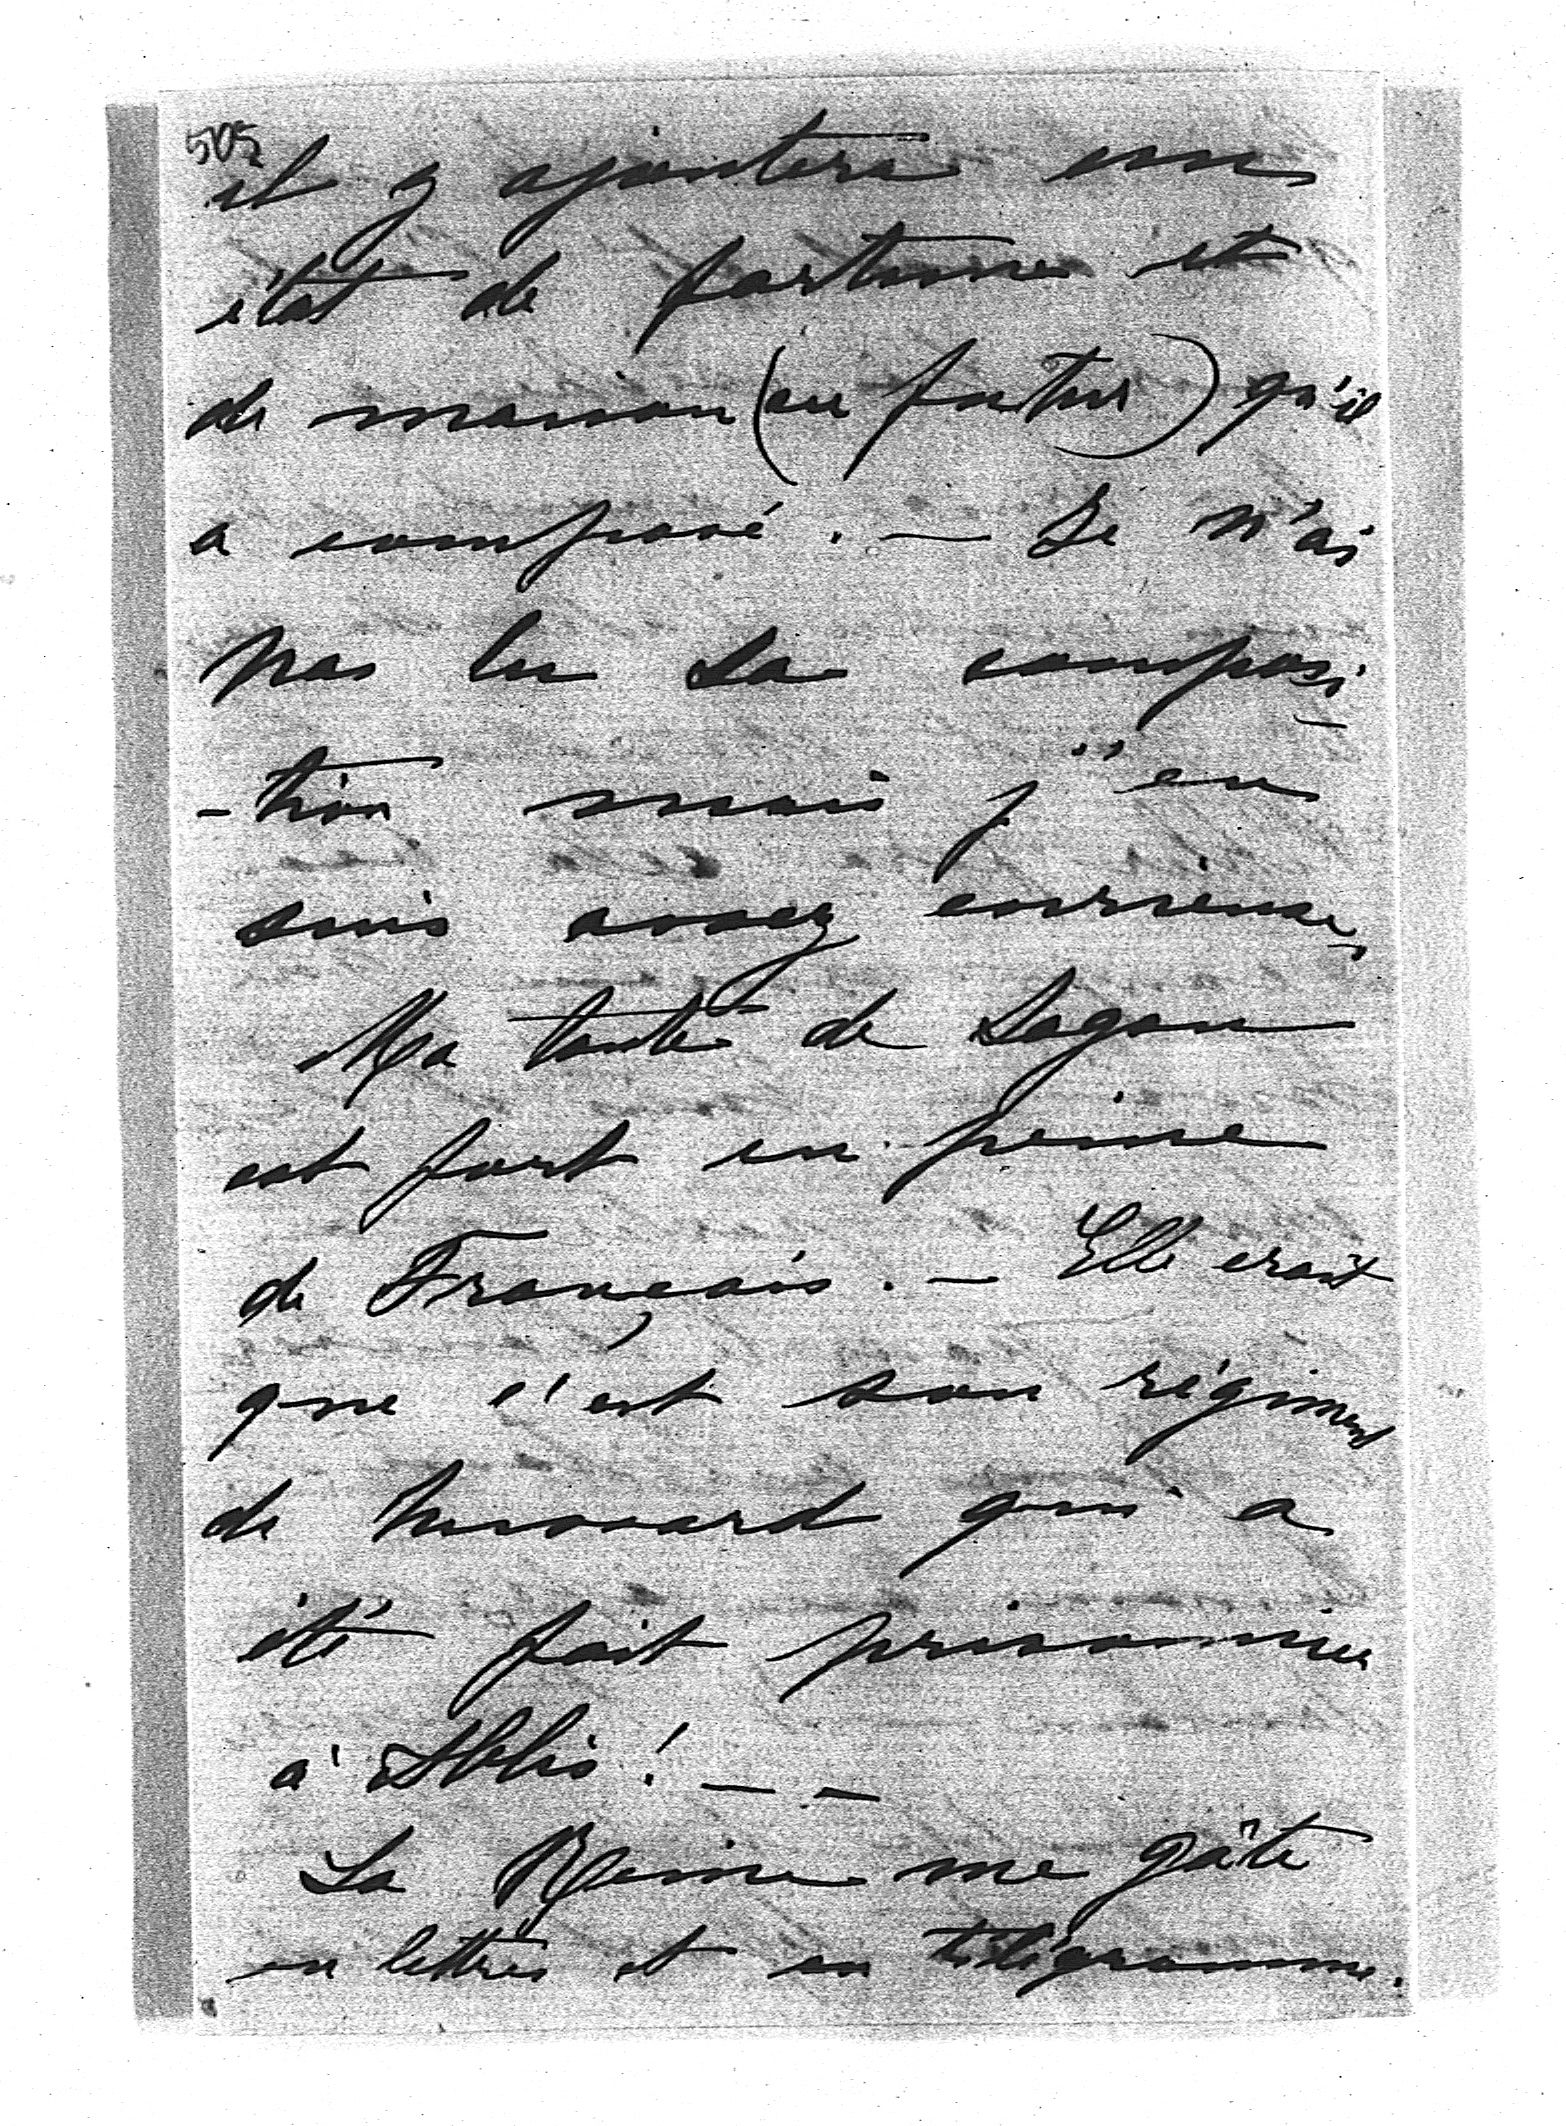 505
il y ajoutera un
état de fortune et
de maison (au futur) qu'il
a composé. — Je n'ai
pas lu la composi
-tion mais j'en
suis assez curieuse,
Ma tante de Sagan
est fort en peine
de Français. — Elle croit
que c'est son régiment
de hussard qui a
été fait prisonnier
à Ablis! — —
La Reine me gâte
en lettres et en télégramme.